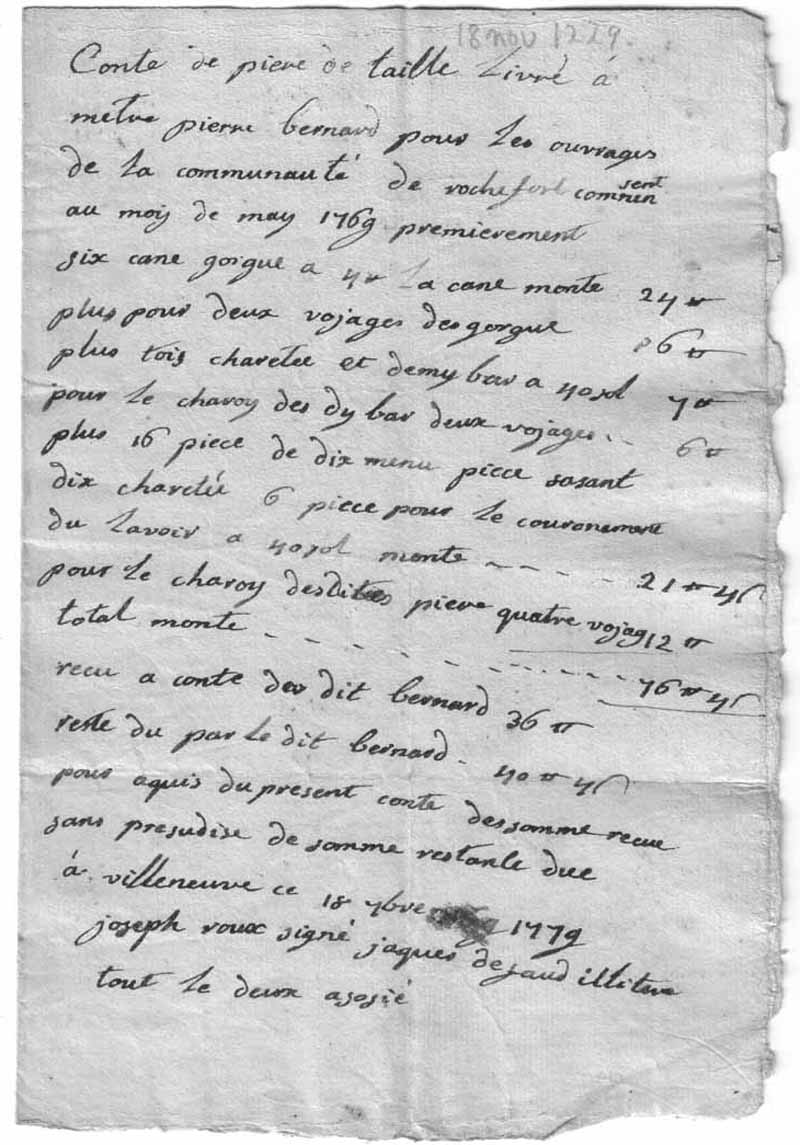 18 nov 1779.
Conte de piere de taille Livré á
metre pierre bernard pour les ouvrages
de la communauté de rochefort commensent
au mois de may 1769 premierement
six cane gorgue a 4 ₶ La cane monte 24 ₶
plus pour deux vojages des gorgue 6 ₶
plus tois charetée et demy bar a 40 sol 7 ₶
pour le charoy des dy bar deux vojages .. 6 ₶
plus 16 piece de dix menu piece sasant
dix charetée 6 piece pour le couronement
du lavoir a 40 sol monte - - - - - 21 ₶ 4 s
pour le charoy desdites piere quatre vojag 12 ₶
total monte - - - - - - - - - - - 76 ₶ 4 s
recu a conte des dit bernard 36 ₶
reste du par le dit bernard - 40 ₶ 4 s
pour aquis du present conte des somme recue
sans presudise de somme restante due
á villeneuve ce 18 9bre 1779
joseph roux signé jaques desaud illitere
tout le deux asosié